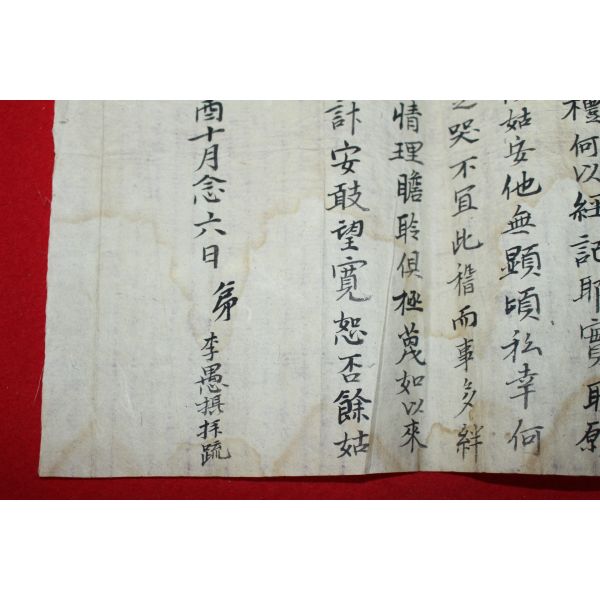 禮何以經記耶實耶原
姑安他無顯頃私幸何
哭不宜此稽而事多絆
情理瞻聆俱極蔑如以來
訃安敢望寬恕否餘姑
酉十月念六日 弟
李愚撰拜疏